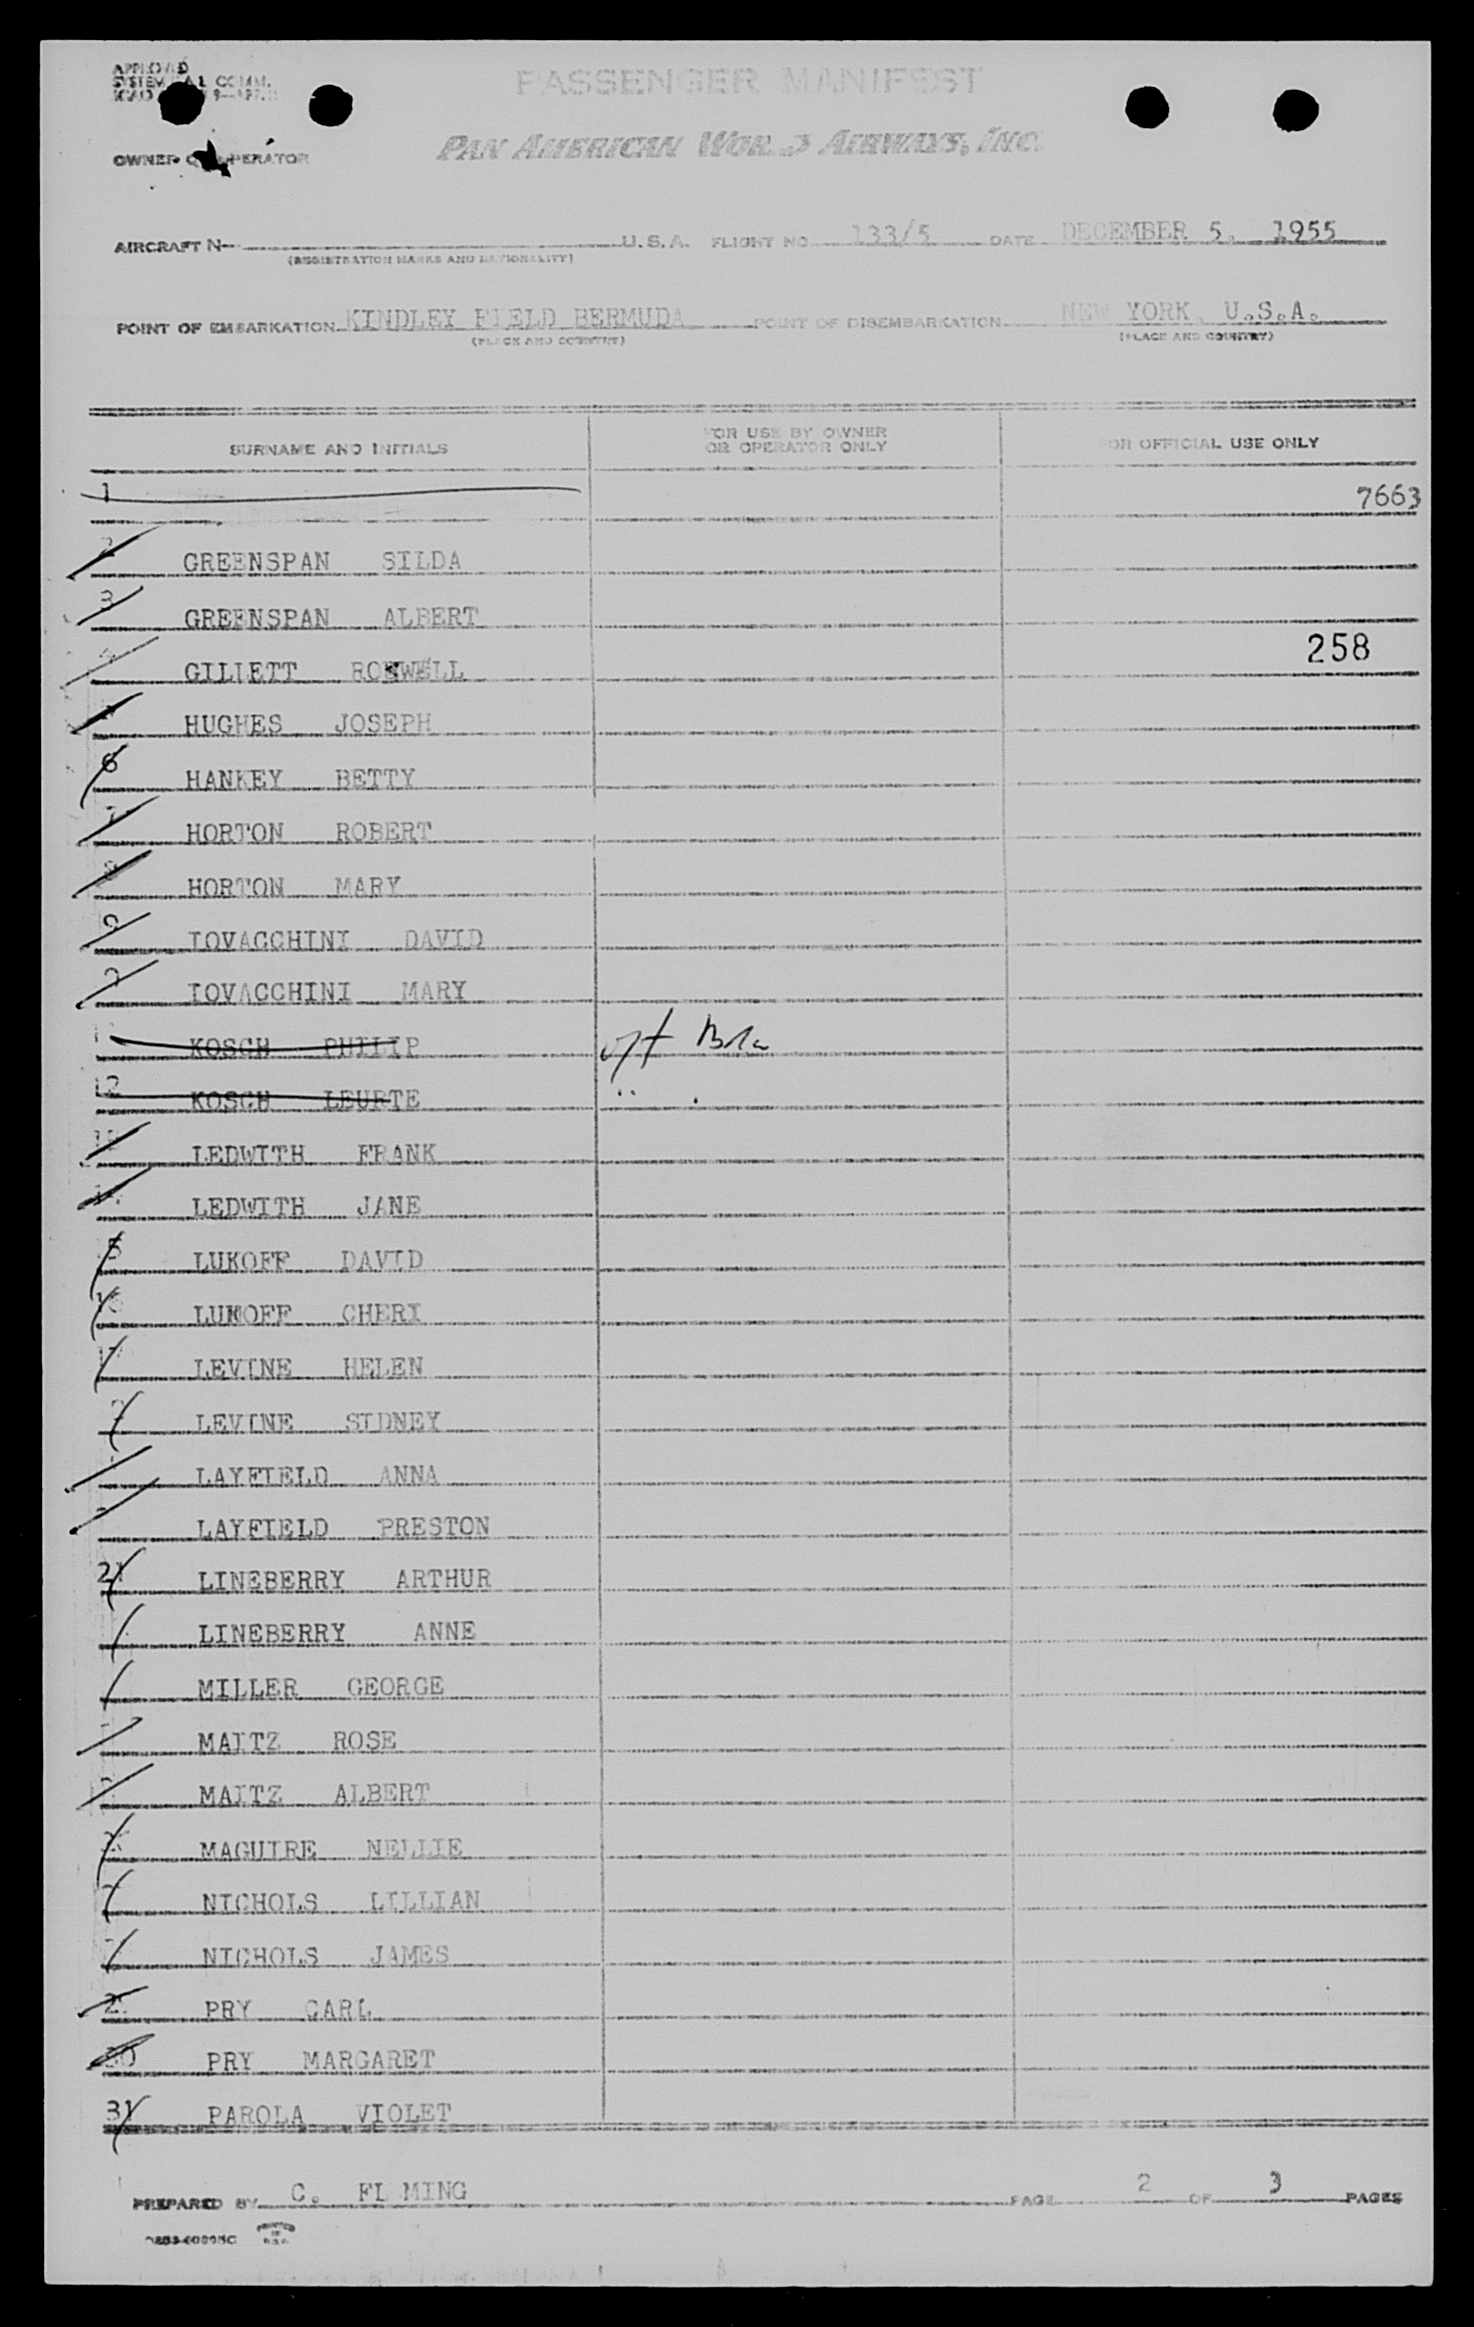 APPROVED
SYSTEM COMM.
OWNER OPERATOR
PASSENGER MANIFEST
PAN AMERICAN WORLD AIRWAYS, INC.
AIRCRAFT N- U. S. A. FLIGHT NO. 133/5 DATE DECEMBER 5, 1955
(REGISTRATION MARKS AND NATIONALITY)
POINT OF EMBARKATION KINDLEY FIELD BERMUDA POINT OF DISEMBARKATION NEW YORK, U.S.A.
(PLACE AND COUNTRY) (PLACE AND COUNTRY)
SURNAME AND INITIALS FOR USE BY OWNER OR OPERATOR ONLY FOR OFFICIAL USE ONLY
1 7663
2 GREENSPAN SILDA
3 GREENSPAN ALBERT
4 GILLETT ROSWELL 258
5 HUGHES JOSEPH
6 HANKEY BETTY
7 HORTON ROBERT
8 HORTON MARY
9 IOVACCHINI DAVID
IOVACCHINI MARY
KOSCH PHILIP
12 KOSCH LEURTE
13 LEDWITH FRANK
14 LEDWITH JANE
5 LUKOFF DAVID
16 LUKOFF CHERI
17 LEVINE HELEN
LEVINE SIDNEY
LAYFIELD ANNA
LAYFIELD PRESTON
21 LINEBERRY ARTHUR
LINEBERRY ANNE
MILLER GEORGE
MAITZ ROSE
MAITZ ALBERT
MAGUIRE NELLIE
NICHOLS LILLIAN
NICHOLS JAMES
2 PRY CARL
30 PRY MARGARET
31 PAROLA VIOLET
PREPARED BY C. FL MING PAGE 2 OF 3 PAGES
PRINTED
IN
U.S.A.